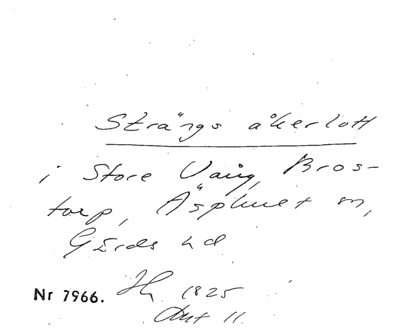 Strängs åkerlott
i Store Vång, Bros-
torp, Äsphult sn,
Gärds hd
Nr 7966. 1825
Akt 11.